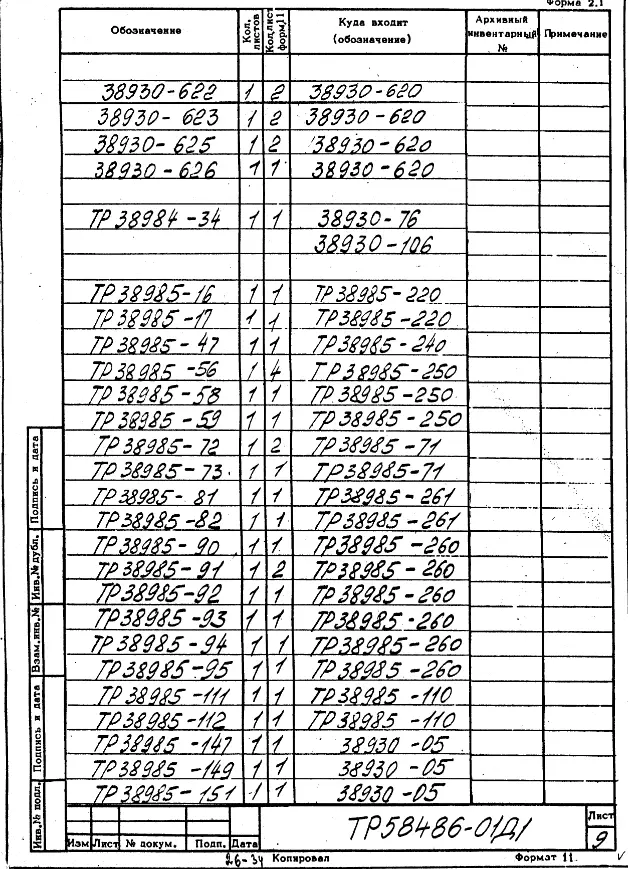 Форма 2.1
Обозначение Кол. листов Кол. лист. форм. 11 Куда входит (обозначение) Архивный инвентарный № Примечание
38930-622 1 2 38930-620
38930-623 1 2 38930-620
38930-625 1 2 38930-620
38930-626 1 1 38930-620
ТР 38984-34 1 1 38930-76
38930-106
ТР38985-16 1 1 ТР38985-220
ТР38985-17 1 1 ТР38985-220
ТР38985-47 1 1 ТР38985-240
ТР38985-56 1 4 ТР38985-250
ТР38985-58 1 1 ТР38985-250
ТР38985-59 1 1 ТР38985-250
ТР38985-72 1 2 ТР38985-71
ТР38985-73 1 1 ТР38985-71
ТР38985-81 1 1 ТР38985-261
ТР38985-82 1 1 ТР38985-261
ТР38985-90 1 1 ТР38985-260
ТР38985-91 1 2 ТР38985-260
ТР38985-92 1 1 ТР38985-260
ТР38985-93 1 1 ТР38985-260
ТР38985-94 1 1 ТР38985-260
ТР38985-95 1 1 ТР38985-260
ТР38985-111 1 1 ТР38985-110
ТР38985-112 1 1 ТР38985-110
ТР38985-147 1 1 38930-05
ТР38985-149 1 1 38930-05
ТР38985-151 1 1 38930-05
Подпись и дата
Инв.№ дубл.
Взам.инв.№
Подпись и дата
Инв.№ подл.
ТР58486-01Д1
Лист
9
Изм Лист № докум. Подп. Дата
26-34 Копировал Формат 11.